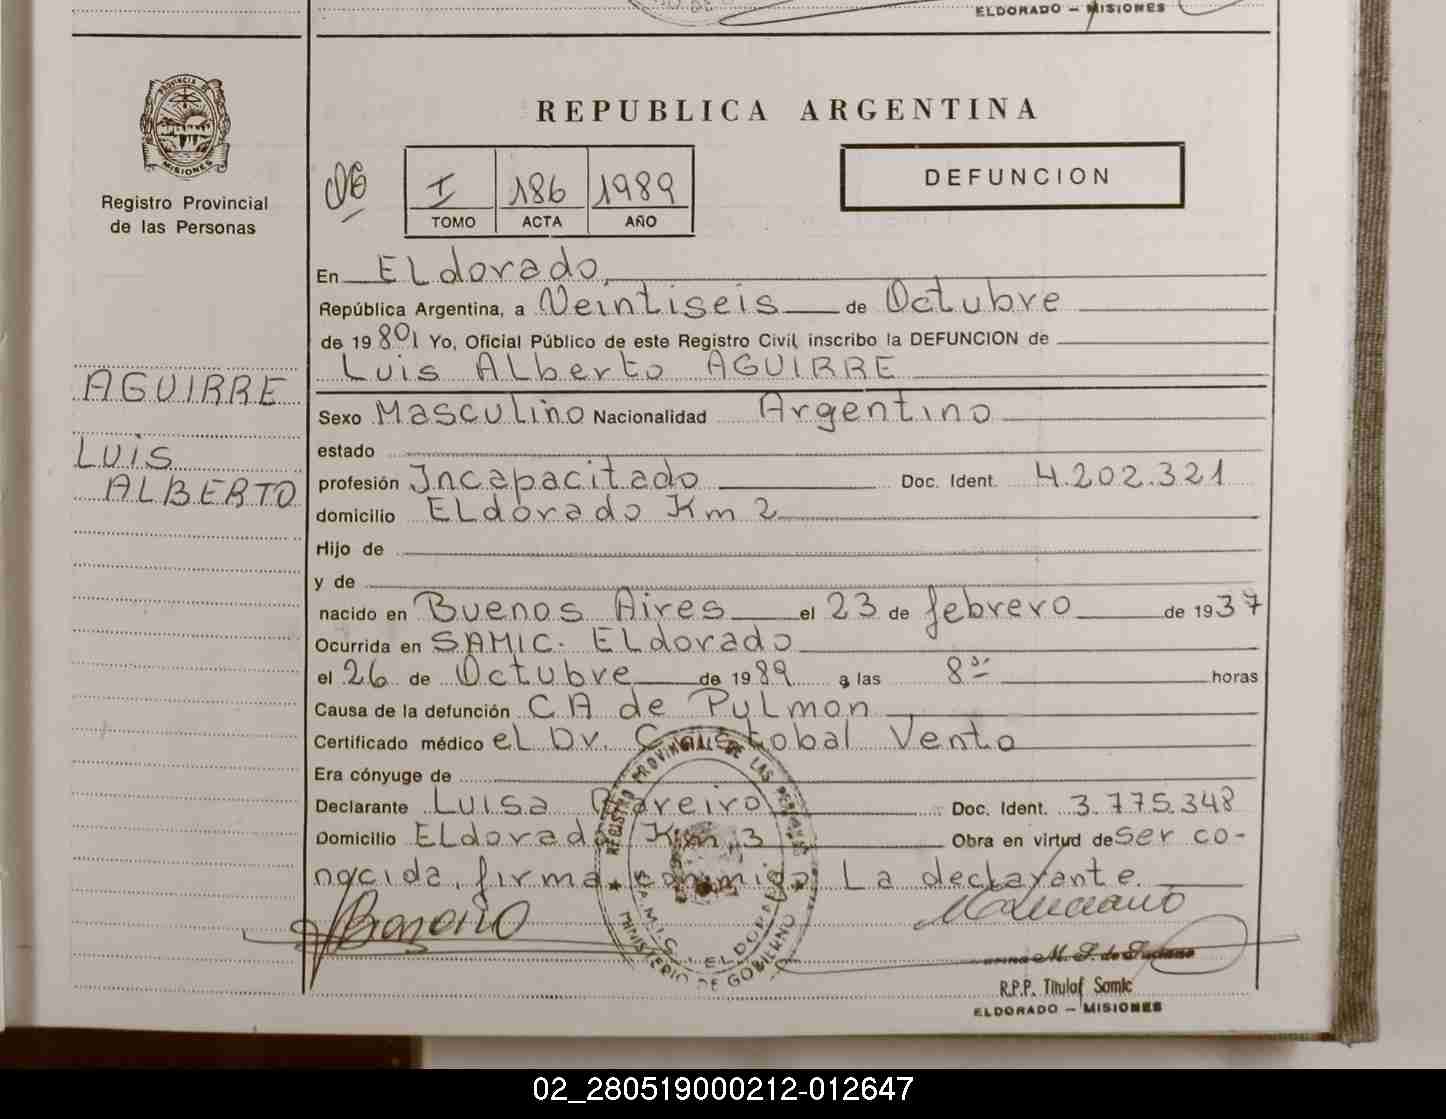 ELDORADO — MISIONES
PROVINCIA DE
MISIONES
Registro Provincial
de las Personas
REPUBLICA ARGENTINA
I 186 1989
TOMO ACTA AÑO
DEFUNCION
En ELdorado,
República Argentina, a Veintiseis de Octubre
de 19 89 Yo, Oficial Público de este Registro Civil inscribo la DEFUNCION de
Luis ALberto AGUIRRE
AGUIRRE
LUIS
ALBERTO
Sexo MascuLino Nacionalidad Argentino
estado
profesión Incapacitado Doc. Ident. 4.202.321
domicilio ELdorado Km 2
Hijo de
y de
nacido en Buenos Aires el 23 de febrero de 1937
Ocurrida en SAMIC. ELdorado
el 26 de Octubre de 1989 a las 8 horas
Causa de la defunción CA de PuLmon
Certificado médico eL Dr. Cristobal Vento
Era cónyuge de
Declarante Luisa Pareiro Doc. Ident. 3.775.348
Domicilio ELdorado Km 3 Obra en virtud de ser co-
nocida, firma conmigo La declarante.
REGISTRO PROVINCIAL DE LAS PERSONAS
S.A.M.I.C. ELDORADO
MINISTERIO DE GOBIERNO
R.P.P. Titular Samic
ELDORADO — MISIONES
02_280519000212-012647